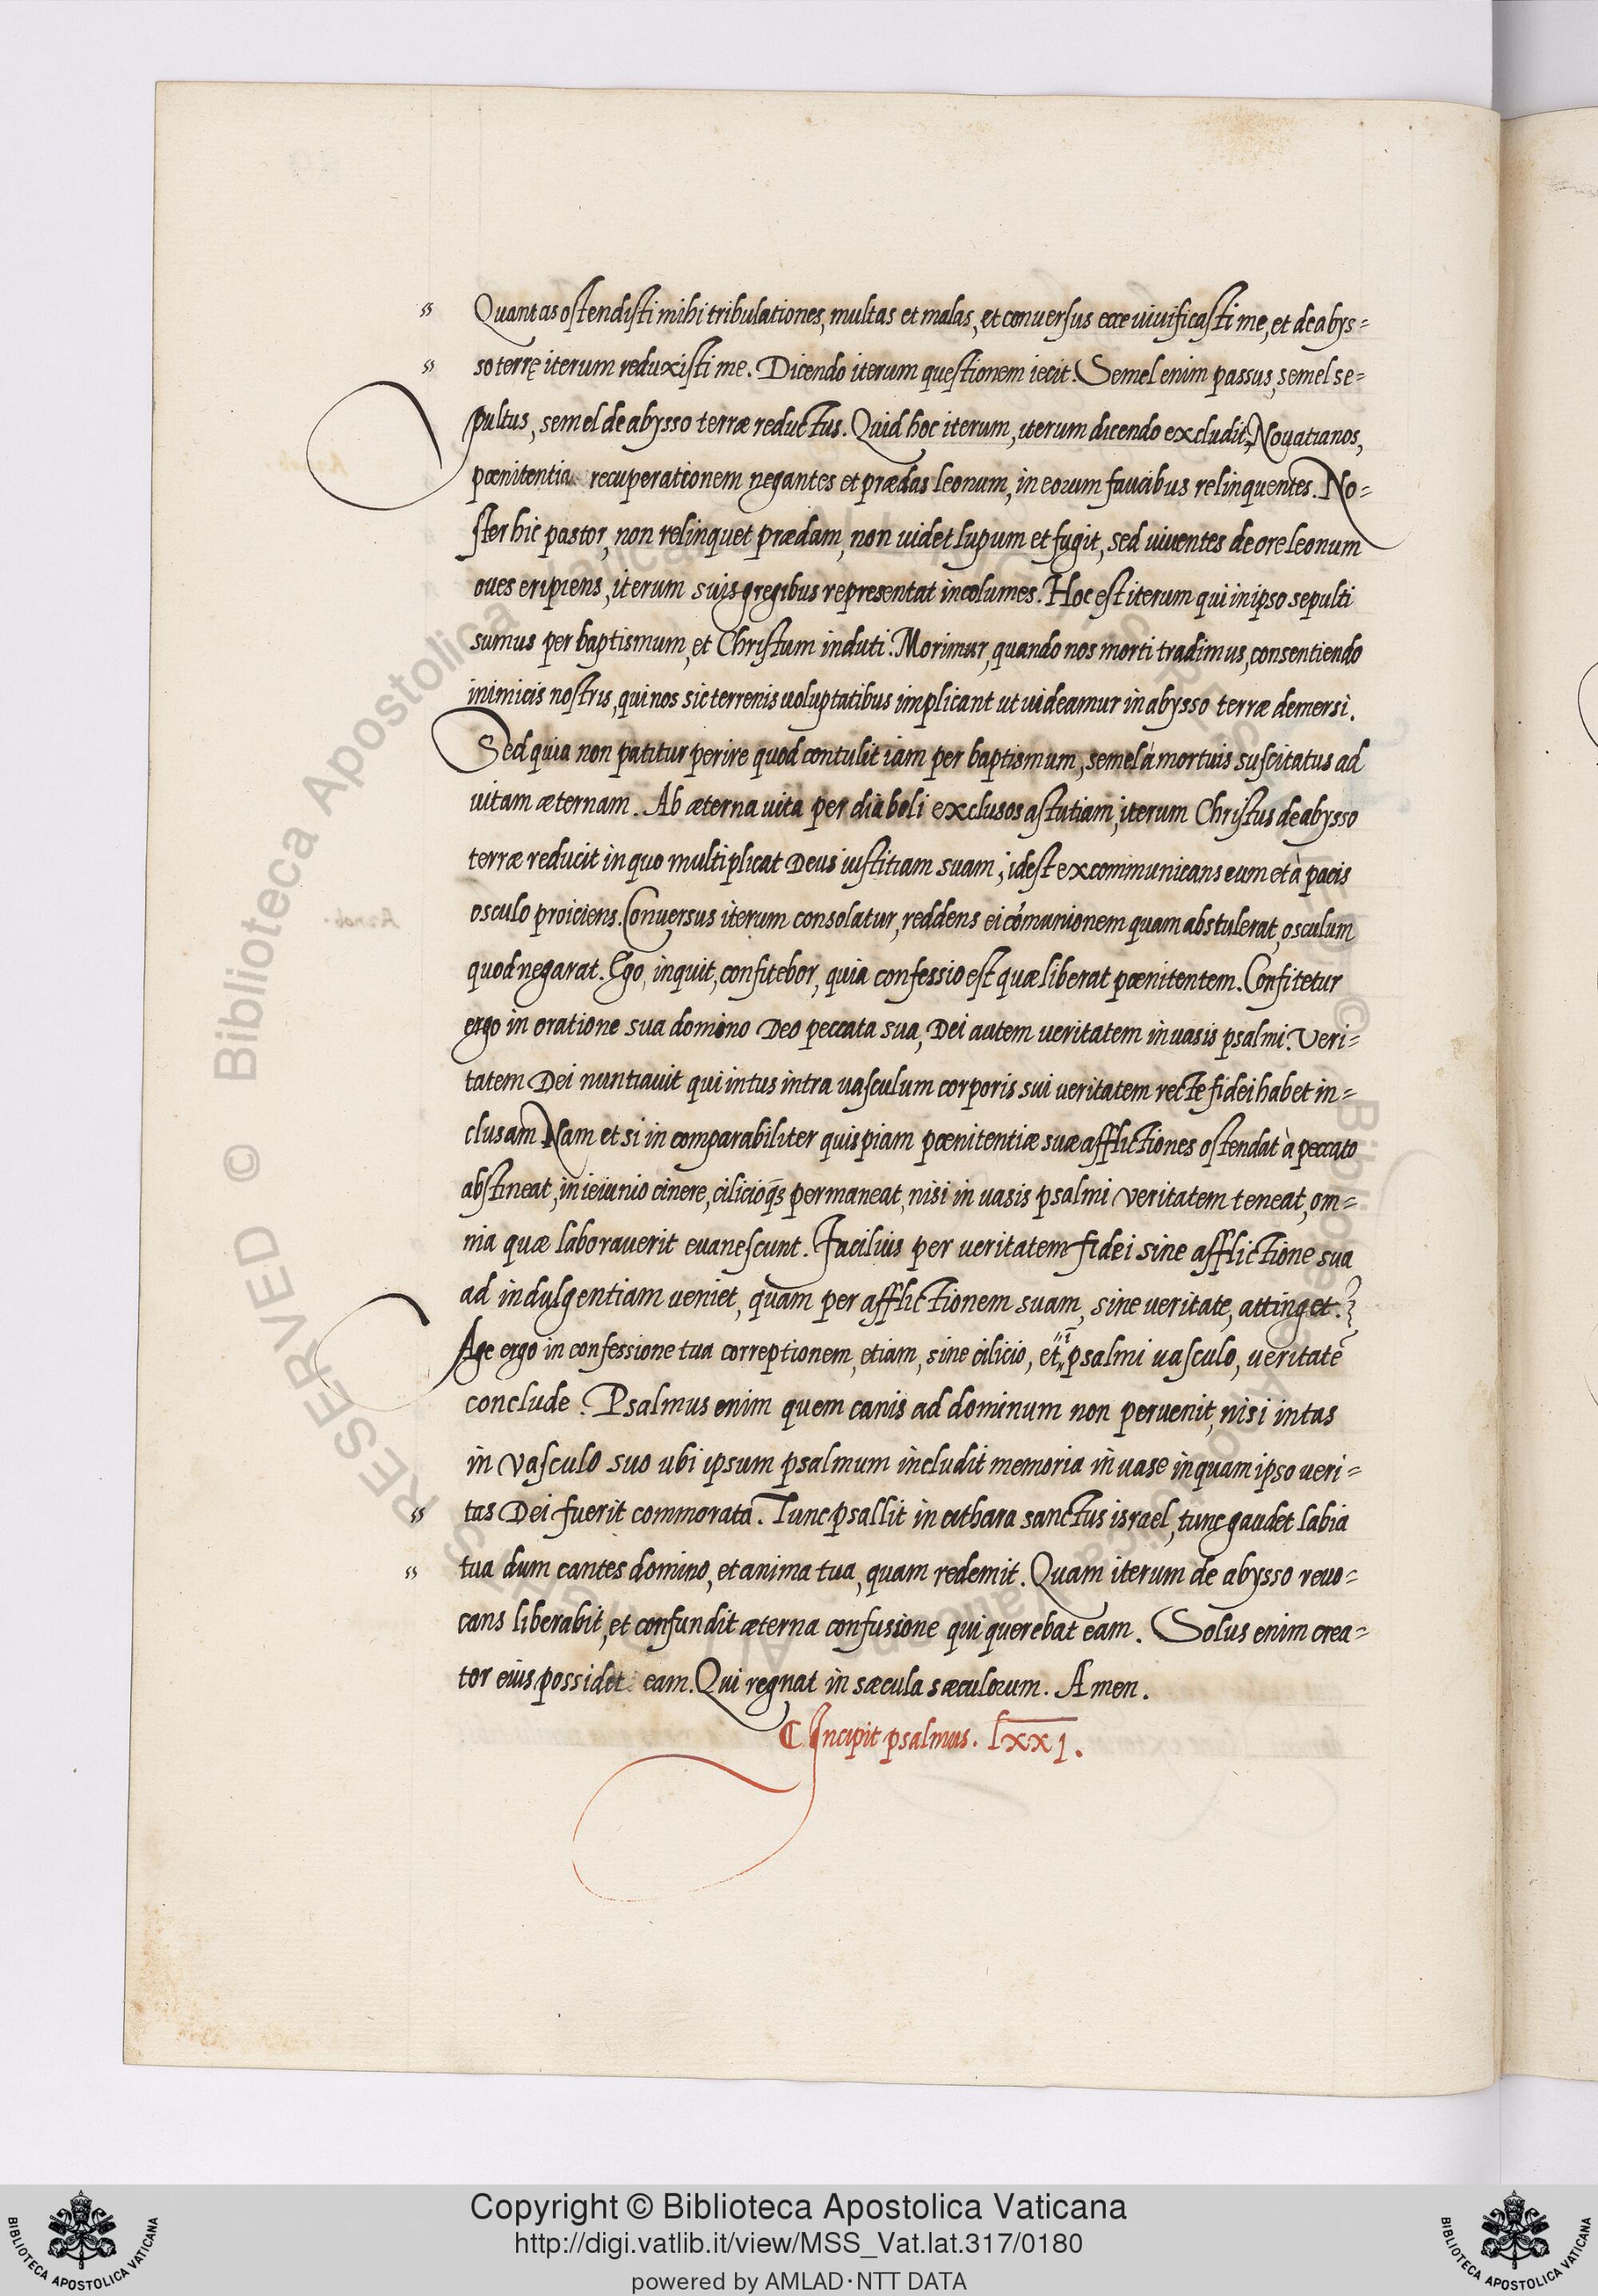 Quantas ostendisti mihi tribulationes, multas et malas, et conuersus ecce uiuificasti me, et de abys=
so terrę iterum reduxisti me. Dicendo iterum questionem iecit. Semel enim passus, semel se=
pultus, semel de abysso terræ reductus. Quid hoc iterum, iterum dicendo excludit Nouatianos,
pœnitentia recuperationem negantes et prædas leonum, in eorum faucibus relinquentes. No=
ster hic pastor, non relinquet prædam, non uidet lupum et fugit, sed uiuentes de ore leonum
oues eripiens, iterum suis gregibus representat incolumes. Hoc est iterum qui in ipso sepulti
sumus per baptismum, et Christum induti. Morimur, quando nos morti tradimus, consentiendo
inimicis nostris, qui nos sic terrenis uoluptatibus implicant ut uideamur in abysso terræ demersi.
Sed quia non patitur perire quod contulit iam per baptismum, semel à mortuis suscitatus ad
uitam æternam. Ab æterna uita per diaboli exclusos astutiam, iterum Christus de abysso
terræ reducit in quo multiplicat Deus iustitiam suam; idest excommunicans eum et à pacis
osculo proiciens. Conuersus iterum consolatur, reddens ei cōmunionem quam abstulerat, osculum
quod negarat. Ego, inquit, confitebor, quia confessio est quæ liberat pœnitentem. Confitetur
ergo in oratione sua domino Deo peccata sua, Dei autem ueritatem in uasis psalmi. Veri=
tatem Dei nuntiauit qui intus intra uasculum corporis sui ueritatem recte fidei habet in=
clusam Nam et si in comparabiliter quispiam pœnitentiæ suæ afflictiones ostendat à peccato
abstineat, in ieiunio cinere, cilicioq̃s permaneat, nisi in uasis psalmi veritatem teneat, om=
nia quæ laborauerit euanescunt. Facilius per ueritatem fidei sine afflictione sua
ad indulgentiam ueniet, quam per afflictionem suam, sine ueritate, attinget.
Age ergo in confessione tua correptionem, etiam, sine cilicio, et ī psalmi uasculo, ueritatē
conclude. Psalmus enim quem canis ad dominum non peruenit, nisi intus
in vasculo suo ubi ipsum psalmum includit memoria in uase inquam ipso ueri=
tas Dei fuerit commorata. Tunc psallit in cithara sanctus israel, tunc gaudet labia
tua dum cantes domino, et anima tua, quam redemit. Quam iterum de abysso reuo=
cans liberabit, et confundit æterna confusione qui querebat eam. Solus enim crea=
tor eius possidet eam. Qui regnat in sæcula sæculorum. Amen.
Incipit psalmus. lxxi.
Copyright © Biblioteca Apostolica Vaticana
http://digi.vatlib.it/view/MSS_Vat.lat.317/0180
powered by AMLAD·NTT DATA
BIBLIOTECA APOSTOLICA VATICANA
BIBLIOTECA APOSTOLICA VATICANA